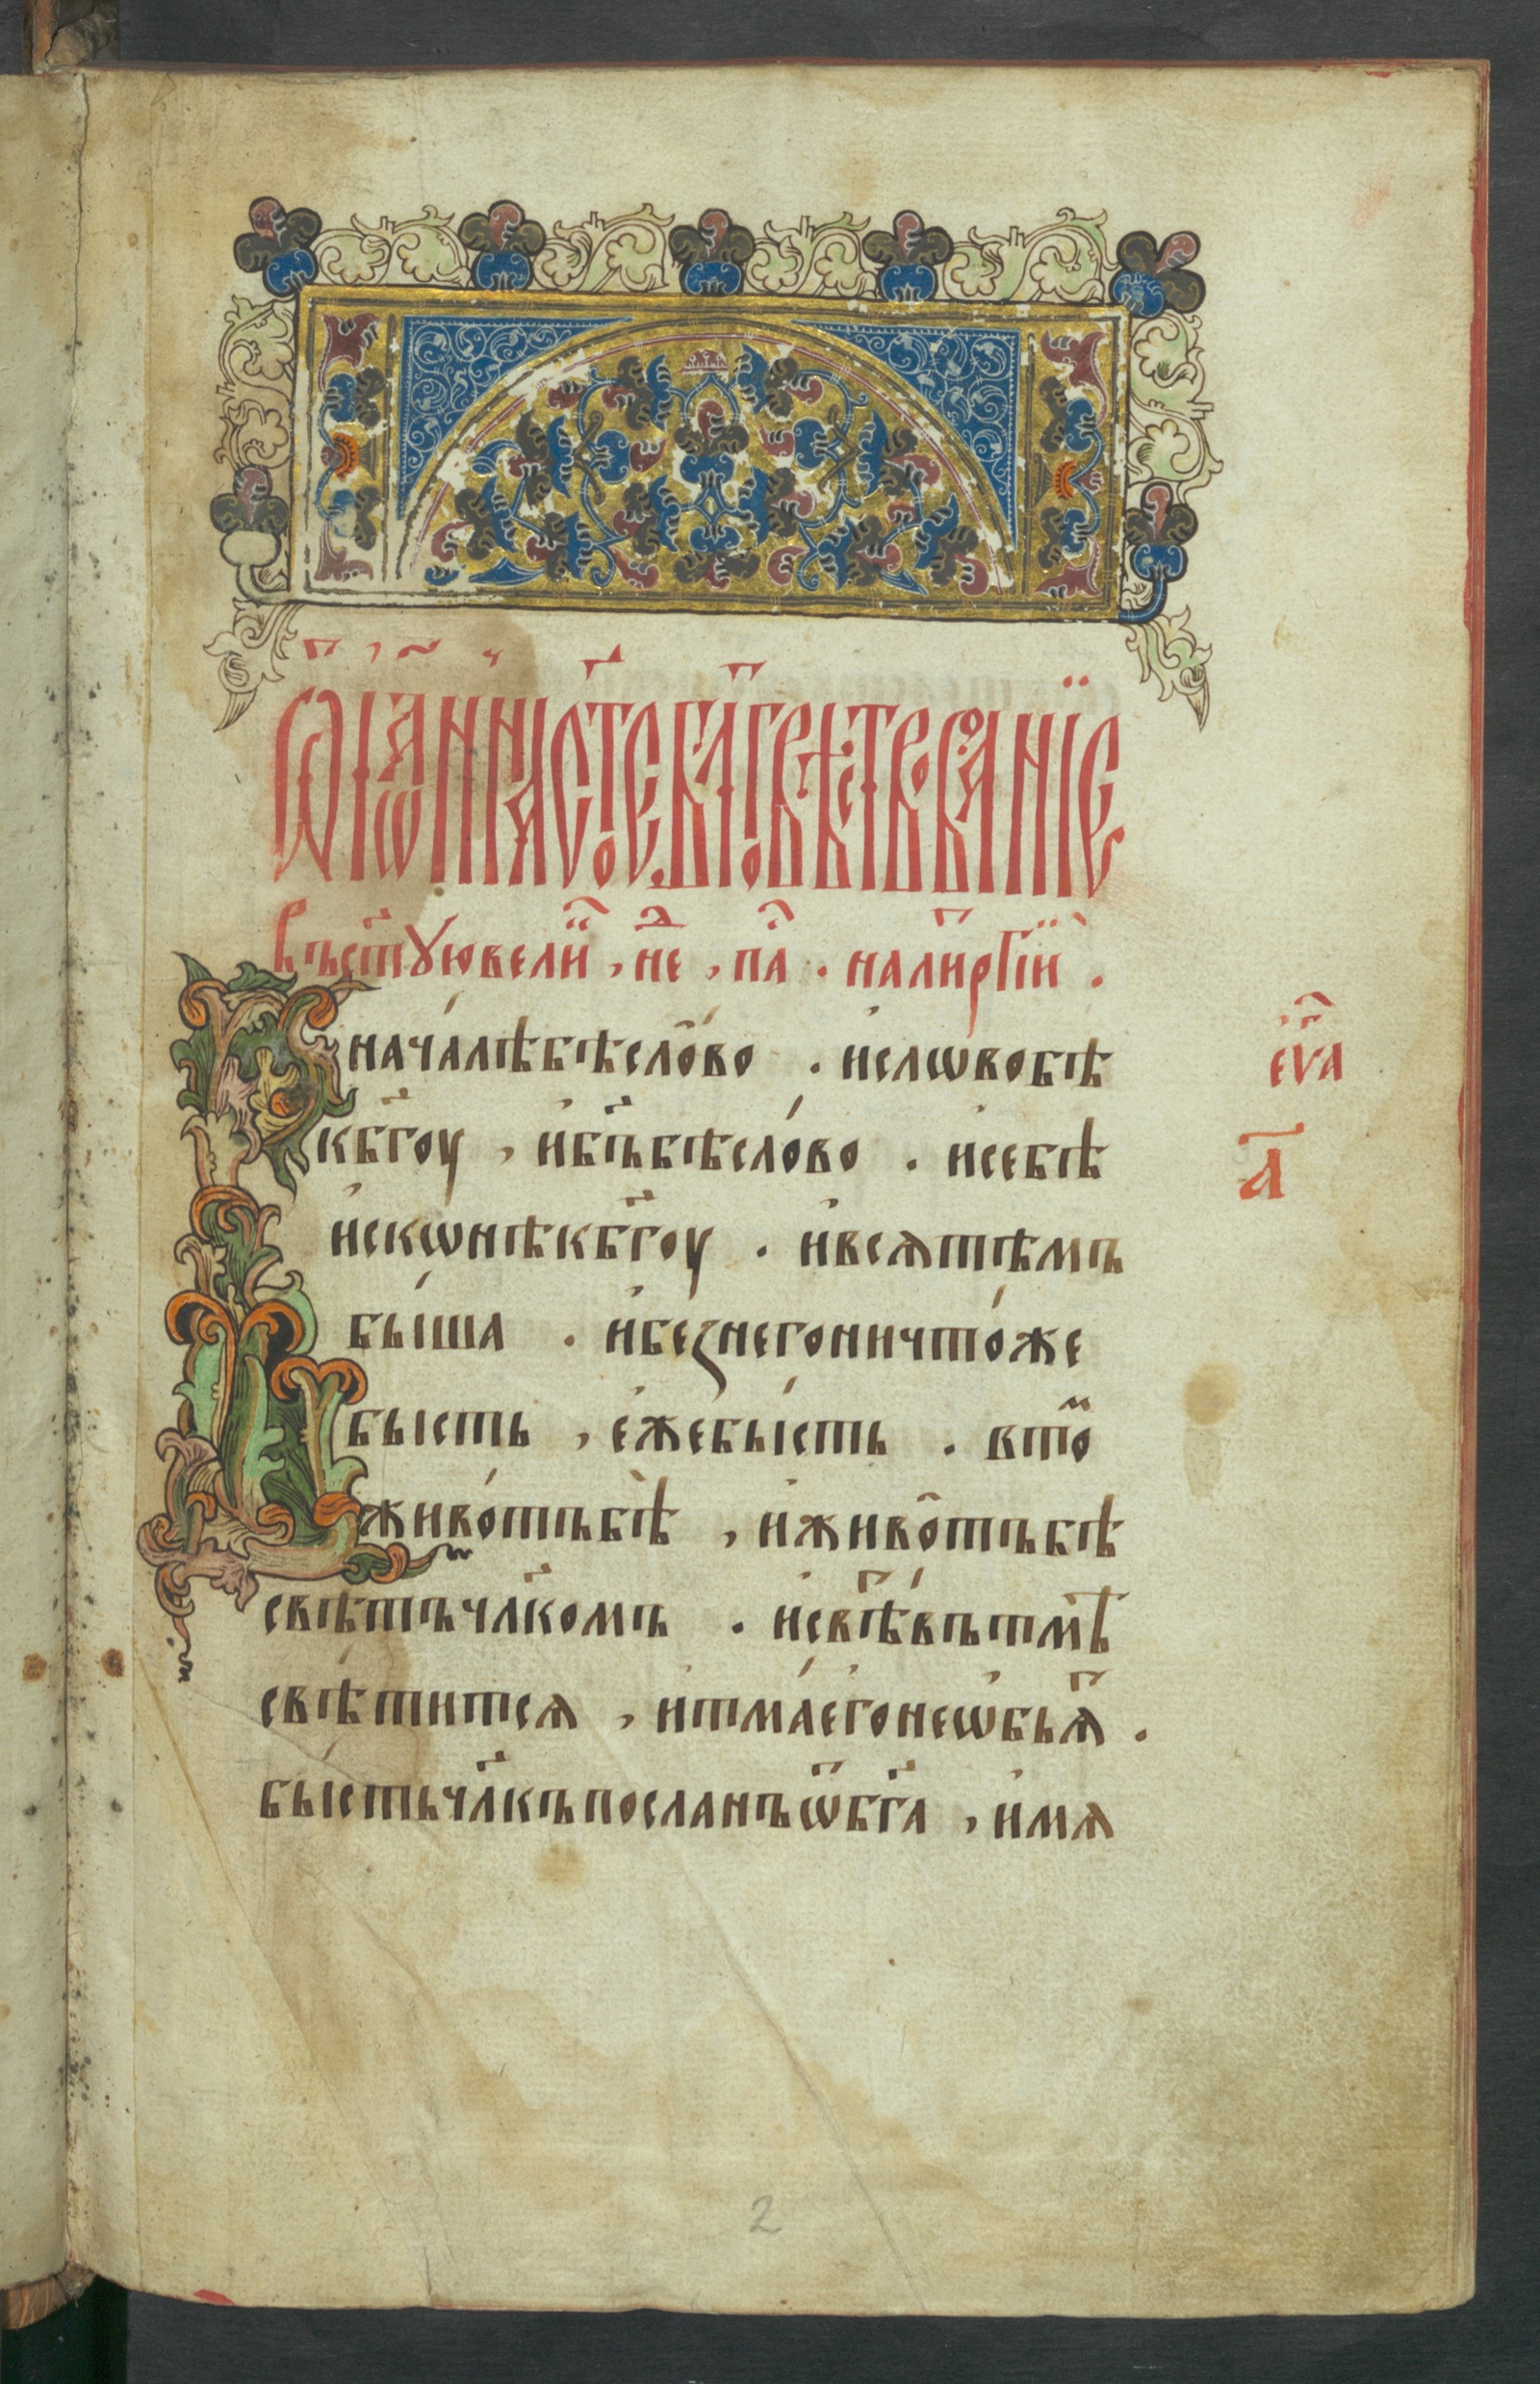 ѿ іѡанна ст҃ое бл҃говѣствованіе
въ ст҃ую вели, не, па. на лир҃гіи.
В начáлѣ бѣ слово. и слѡво бѣ
к бг҃оу, и бг҃ъ бѣ слóво. и се бѣ
еѵⷢ҇а
а҃
искѡни к бг҃оу. и вся тѣмъ
бы́ша. и без него ничтóже
бысть, еже бы́сть. в тоⷨ
живóтъ бѣ, и живóтъ бѣ
свѣтъ чл҃комъ. и свѣⷮ въ тмѣ
свѣтится, и тмá его не ѡбьяⷮ.
бы́сть чл҃къ посланъ ѿ бг҃а, имя
2